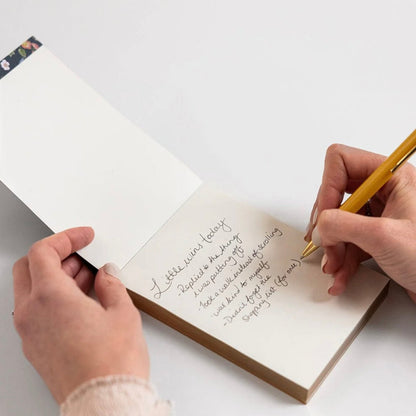 Little wins today
- Replied to the thing
i was putting off
- Took a walk instead of scrolling
- was kind to myself
- Didn't forget the
shopping list (for once)